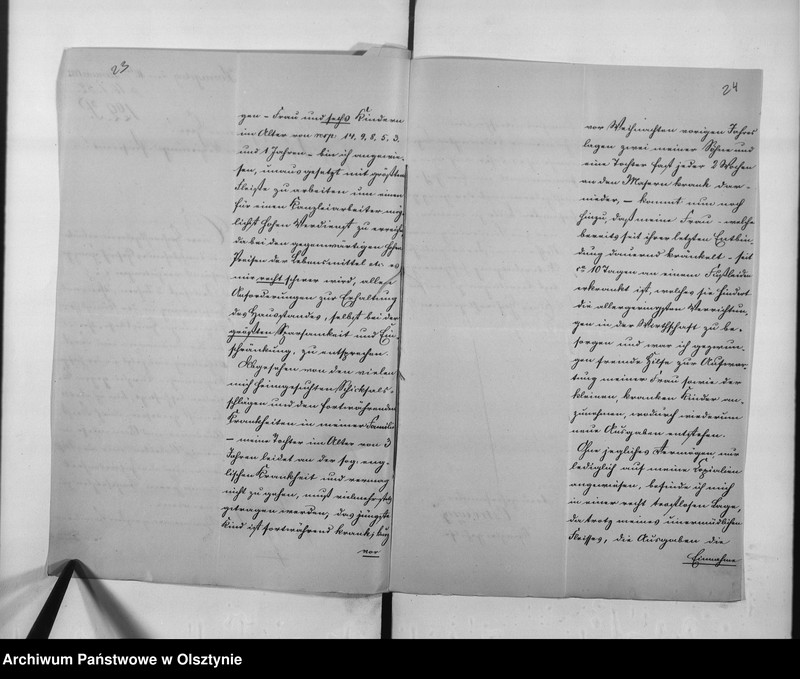 23
gen – Frau und sechs Kindern
im Alter von resp. 14. 9. 8. 5. 3.
und 1 Jahren – bin ich angewie-
sen, unausgesetzt mit größtem
Fleiße zu arbeiten um einen
für einen Kanzleiarbeiter mög
lichst hohen Verdienst zu erreichen
da bei den gegenwärtigen hohen
Preisen der Lebensmittel etc. es
mir recht schwer wird, allen
Anforderungen zur Erhaltung
des Hausstandes, selbst bei der
größten Sparsamkeit und Ein-
schränkung, zu entsprechen.
Abgesehen von den vielen
mich heimgesuchten Schicksals-
schlägen und den fortwährenden
Krankheiten in meiner Familie
– meine Tochter im Alter von 3
Jahren leidet an der sog. eng-
lischen Krankheit und vermag
nicht zu gehen, muß vielmehr stets
getragen werden, das jüngste
Kind ist fortwährend krank, kurz
vor
24
vor Weihnachten vorigen Jahres
lagen zwei meiner Söhne und
eine Tochter fast jeder 2 Wochen
an den Masern krank dar-
nieder, – kommt nun noch
hinzu, daß meine Frau – welche
bereits seit ihrer letzten Entbin-
dung dauernd kränkelt – seit
ca 10 Tagen an einem Fußleiden
erkrankt ist, welches sie hindert
die allergeringsten Verrichtun-
gen in der Wirtschaft zu be-
sorgen und war ich gezwun-
gen fremde Hilfe zur Aufwar-
tung meiner Frau sowie der
kleinen, kranken Kinder an-
zunehmen, wodurch wiederum
neue Ausgaben entstehen.
Ohne jegliches Vermögen nur
lediglich auf meine Copialien
angewiesen, befinde ich mich
in einer recht trostlosen Lage,
da trotz meines unermüdlichen
Fleisses, die Ausgaben die
Einnahme
Archiwum Państwowe w Olsztynie